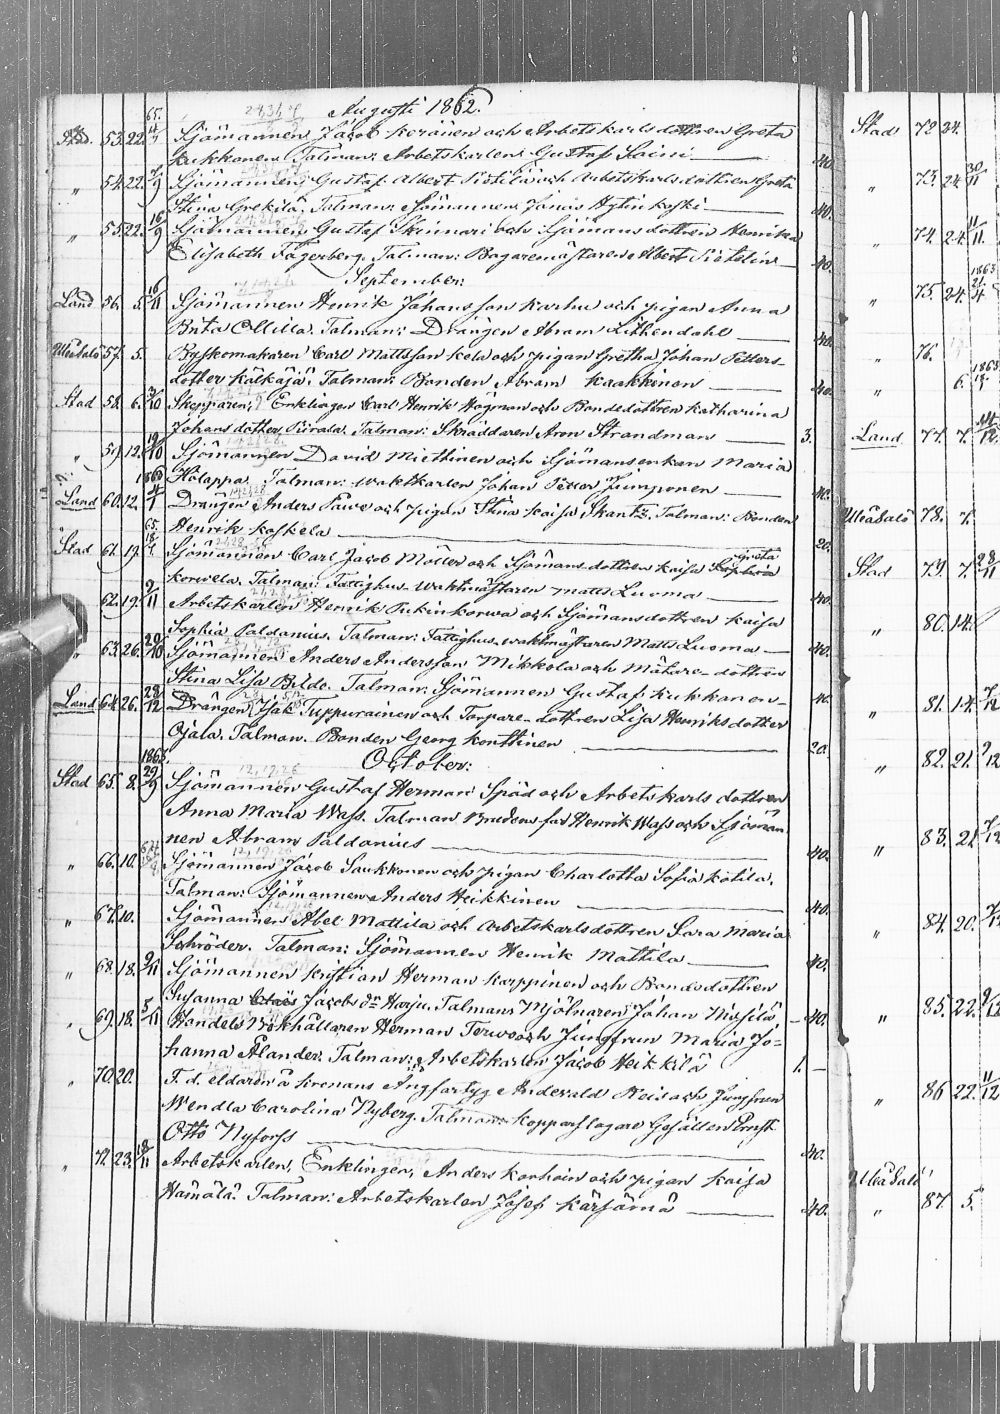 Augusti 1862.
Stad. 53. 22. Sjömannen Jacob Keränen och Arbetskarlsdottren Greta
Kukkonen. Talman: Arbetskarlen Gustaf Saini — 40.
" 54. 22. 7/9 Sjömannen Gustaf Albert Pietilä och Arbetskarlsdottren Greta
Stina Grekilä. Talman: Sjömannen Jonas Hytinkoski — 40.
" 55. 22. 16/9 Sjömannen Gustaf Skinnari och Sjömansdottren Henrika
Elisabeth Fågerberg. Talman: Bagaremästaren Albert — 40.
September:
Land 56. 5. 16/11 Sjömannen Henrik Johansson Karhu och pigan Anna
Brita Ollila. Talman: Drängen Abram Lithendahl — 40.
Uleåsalo 57. 5. Byskomakaren Carl Mattsson Kela och pigan Gretha Johan Petters-
dotter Kälkäjä. Talman: Bonden Abram Kaakkinen — 40.
Stad 58. 6. 3/10 Skepparen, Enklingen Carl Henrik Högman och Bondedottren Katharina
Johansdotter Pirala. Talman: Skräddaren Aron Strandman — 3.
" 59. 12. 19/10 Sjömannen David Miettinen och Sjömansenkan Maria
Holappa. Talman: Waktkarlen Johan Petter Jumponen — 40.
Land 60. 12. Drängen Anders Pauwo och pigan Stina Kaisa Skantz. Talman: Bonden
Henrik Koskela — 20.
Stad 61. 19. Sjömannen Carl Jacob Möller och Sjömansdottren Kaisa Greta
Korwela. Talman: Fattighus-waktmästaren Matts Luoma — 40.
62. 19. 9/11 Arbetskarlen Henrik Pukinkorwa och Sjömansdottren Kaisa
Sophia Paldanius. Talman: Fattighus-waktmästaren Matts Luoma — 40.
" 63. 26. 29/10 Sjömannen Anders Andersson Mikkola och Mätare-dottren
Stina Lisa Bilde. Talman: Sjömannen Gustaf Kukkonen — 40.
Land 64. 26. 28/12 Drängen Isak Tuppurainen och Torpare-dottren Lisa Henriksdotter
Ojala. Talman. Bonden Georg Konttinen — 20.
October:
Stad 65. 8. 29/9 Sjömannen Gustaf Herman Späd och Arbetskarlsdottren
Anna Maria Wass. Talman Brudens far Henrik Wass och Sjöman-
nen Abram Paldanius — 40.
" 66. 10. Sjömannen Jacob Saukkonen och pigan Charlotta Sofia Kotila.
Talman: Sjömannen Anders Heikkinen — 40.
" 67. 10. Sjömannen Abel Mattila och Arbetskarlsdottren Sara Maria
Schröder. Talman: Sjömannen Henrik Mattila — 40.
" 68. 18. 9/11 Sjömannen Kristian Herman Karppinen och Bondedottren
Susanna Jacobs dr Harju. Talman: Mjölnaren Johan — 40.
" 69. 18. 5/11 Handels Bokhållaren Herman Terwo och Jungfrun Maria Jo-
hanna Ålander. Talman: Arbetskarlen Jacob Heikkilä 1. —
" 70. 20. F. d. eldaren å Kronans Ångfartyg Anderwald och Jungfrun
Wendla Carolina Nyberg. Talman: Kopparslagare Gesällen Ernst
Otto Nyforss — 40.
" 71. 23. 18/11 Arbetskarlen, Enklingen, Anders Korhoin och pigan Kaisa
Hämälä. Talman: Arbetskarlen Josef Kärsämä — 40.
Stad 72 24.
" 73. 24 30/11
" 74. 24. 11/11.
" 75. 24. 1863 21/4
" 76.
" 6. 1863
Land 77. 7. 14/12.
Uleåsalo 78. 7.
Stad 79. 7. 28/11
" 80. 14.
" 81. 14. 7/12
" 82. 21. 7/12
" 83. 21. 7/12
" 84. 20. 7/12
" 85. 22. 9/12
" 86 22. 11/12
Uleåsalo
" 87. 5.